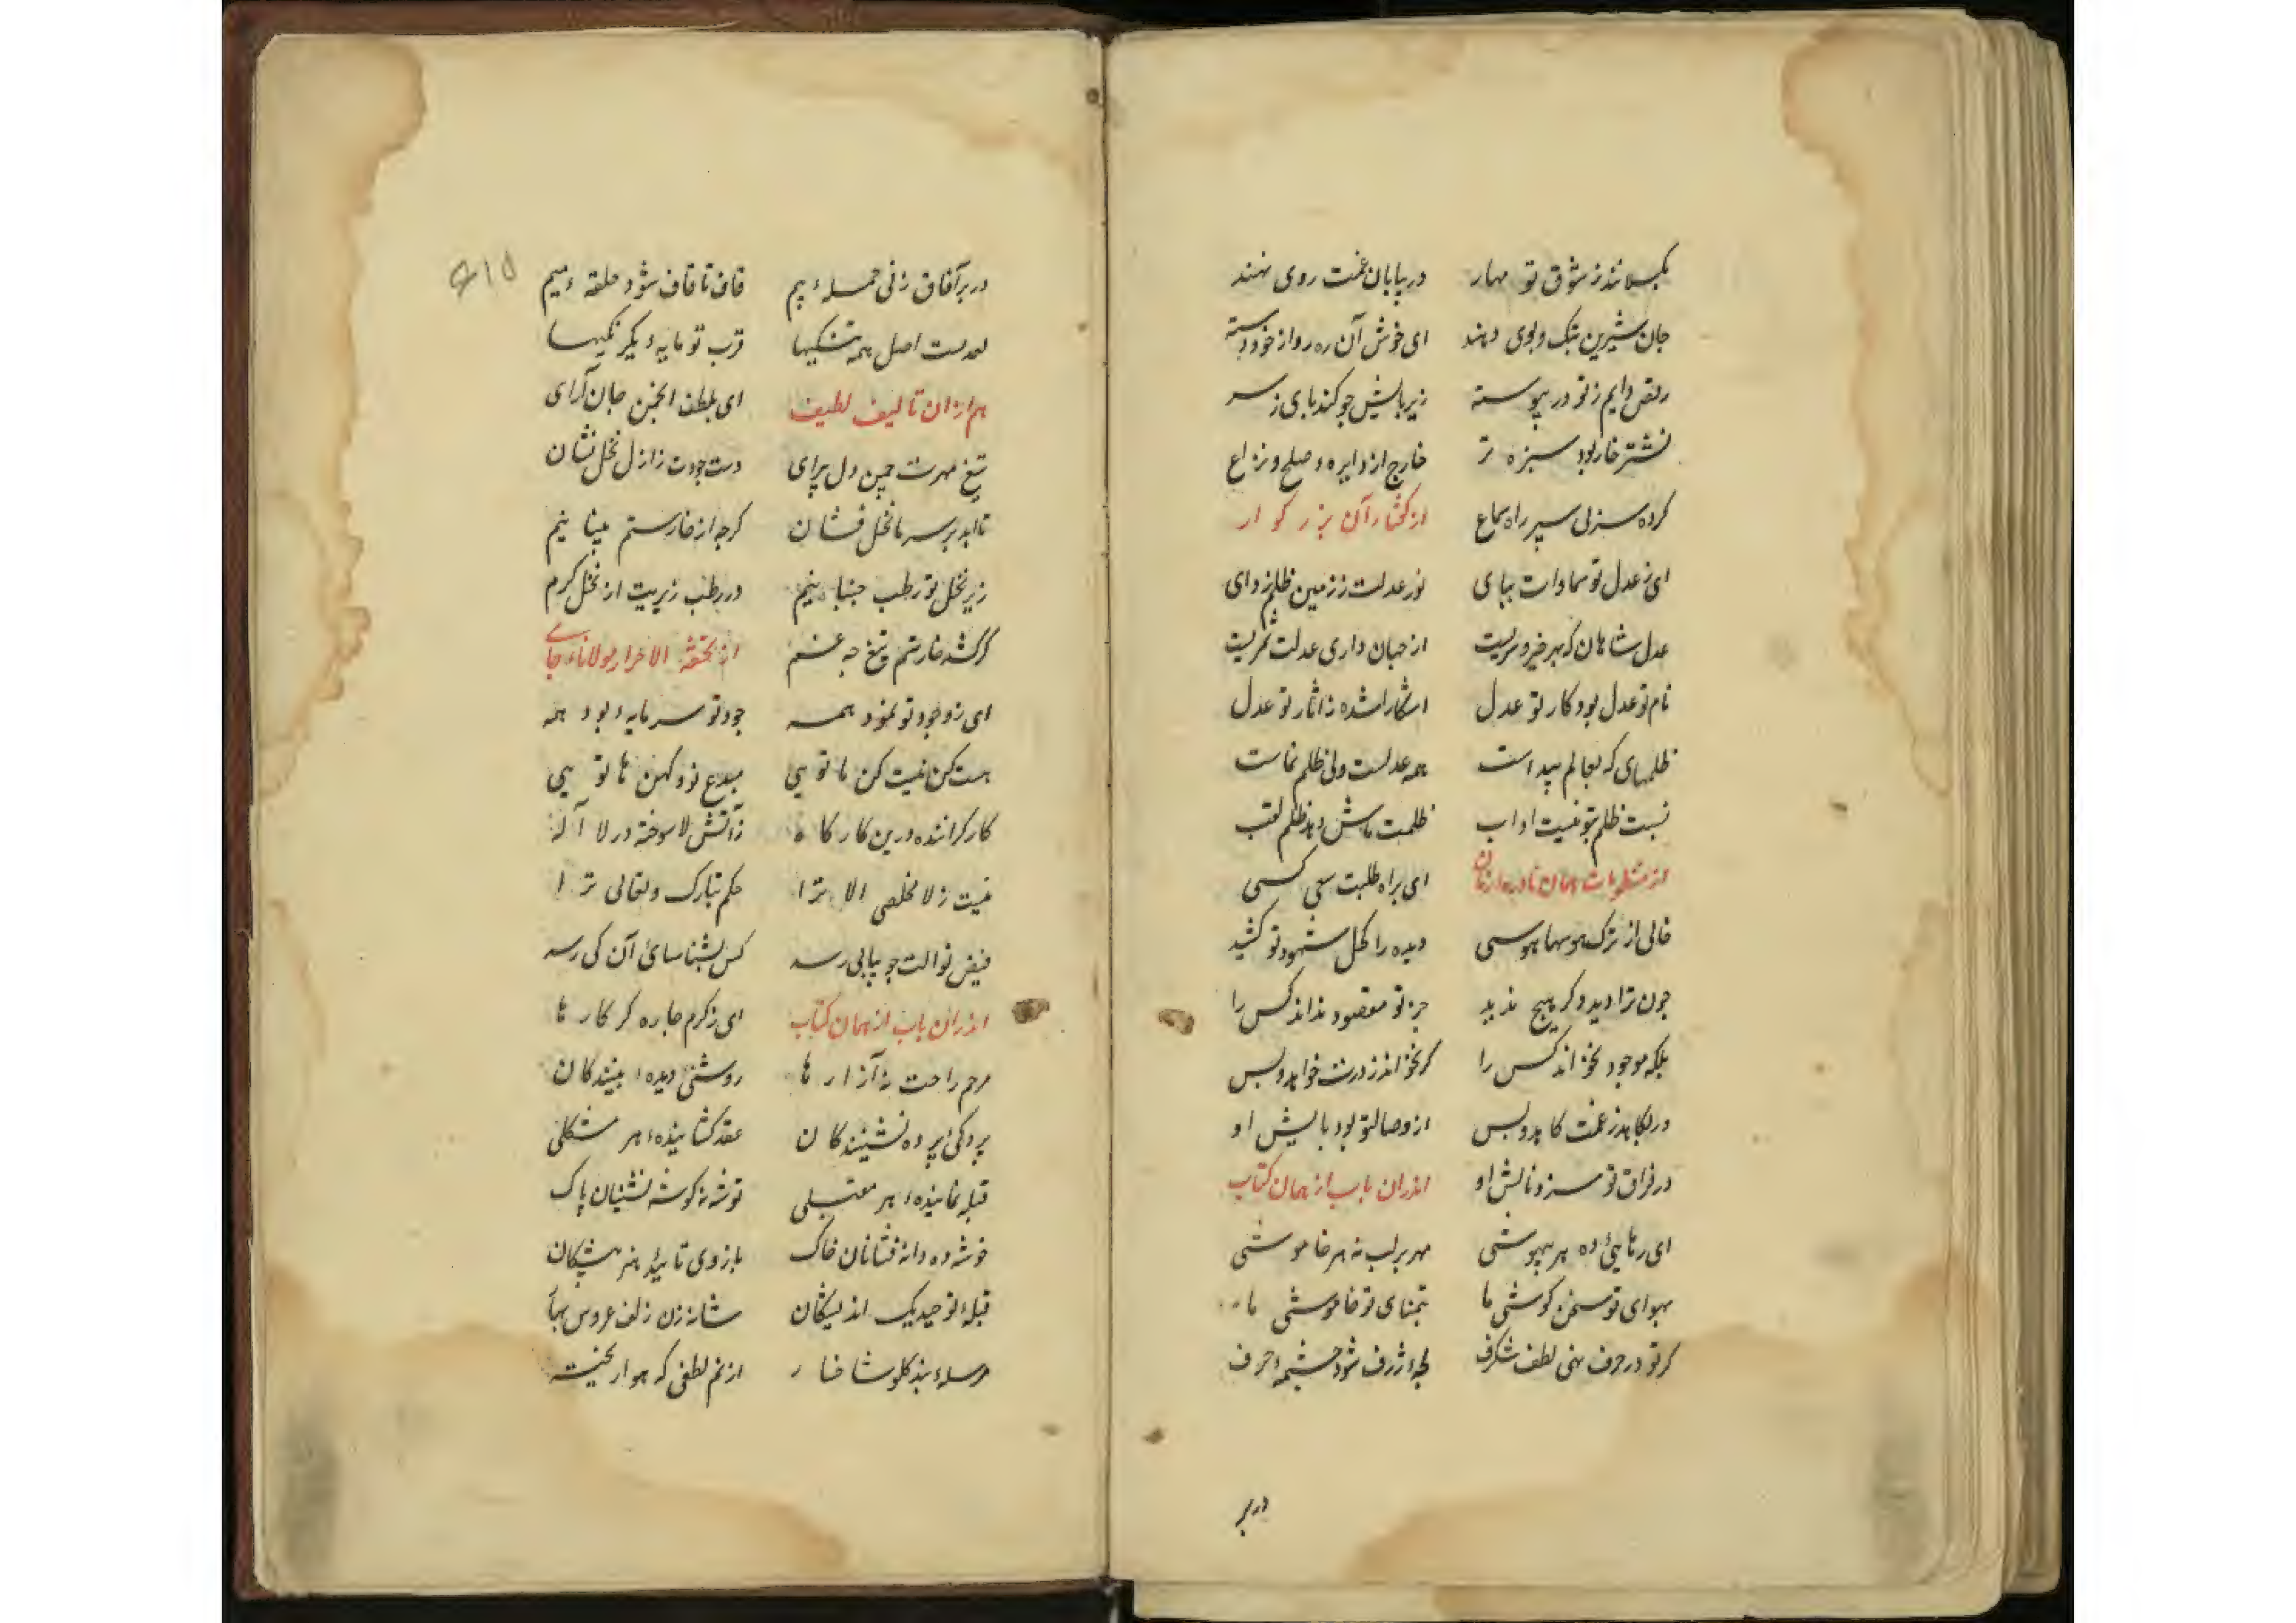 بکسلانند ز شوق تو مهار در بیابان غمت روی نهند
جان شیرین بتک و پوی دهند ای خوش آن ره رو از خود رسته
رقص دایم ز تو در پیوسته زیر پایش چو کند پای ز سر
نشتر خار بود سبزه تر خارج از دایره صلح و نزاع
کرده سر پی سپر راه سماع از گفتار آن بزرگوار
ای ز عدل تو سماوات بپای نور عدلت ز زمین ظلم زدای
عدل شاهان که بهر خیر و شریست از جهان داری عدلت ثمریست
نام تو عدل بود کار تو عدل اشکارا شده ز اثار تو عدل
ظلمهای که بعالم پیداست همه عدلست ولی ظلم نماست
نسبت ظلم بتو نیست اداب ظلمت ماش دهد ظلم لقب
از همان ای براه طلبت سعی کسی
خالی از ترک هوسها هوسی دیده را کحل شهود تو کشید
چون ترا دید دکر هیچ ندید جز تو مقصود نداند کس را
بلکه موجود نخواند کس را کر نخواند ز درت خواهد و بس
ور بکاهد ز غمت کاهد و بس از وصال تو بود بالش او
در فراق تو سزد نالش او اندران باب از همان کتاب
ای رهایی ده هر بیهوشی مهر بر لب نه هر خاموشی
بهوای تو سخن کوشی ما بتمنای تو خاموشی ما
کر تو در حرف نهی لطف شکرف لجه ژرف شود چشمه حرف
در بر
۶۱۵
در بر آفاق زنی حمله بیم قاف تا قاف شود حلقه میم
بعد تست اصل همه تنکیها قرب تو مایه دیکر نکیها
هم از ان تالیف لطیف ای بلطف انجمن جان آرای
تیغ مهرت چمن دل پیرای دست جودت ز ازل نخل نشان
تا ابد بر سر ما نخل فشان کرچه از خار ستم بینایم
زیر نخل تو رطب چینایم در رطب زیریت از نخل کرم
کر کشد خار ستم تیغ چه غم از تحفة الاحرار مولانا جامی
ای ز وجود تو نمود همه جود تو سرمایه بود همه
هست کن نیست کن ما تویی مبدع نو و کهن ما تویی
کار کراننده درین کارکاه ز آتش لا سوخته در لا آله
نیست ز لا مخلصی الا ترا حکم تبارک و تعالی ترا
فیض نوالت چو پیاپی رسد کس بشناسائ آن کی رسد
اندران باب از همان کتاب ای ز کرم چاره کر کارها
مرهم راحت نه آزارها روشنی دیده بینندکان
پردکئ پرده نشینندکان عقد کشاینده هر مشکلی
قبله نماینده هر مقبلی توشه نه کوشه نشینان پاک
خوشه ده دانه فشانان خاک بازوی تایید هنر پیشکان
قبله توحید یک اندیشکان شانه زن زلف عروس بهار
مرسله بند کلو شاخسار از نم لطفی که هوا ریخته